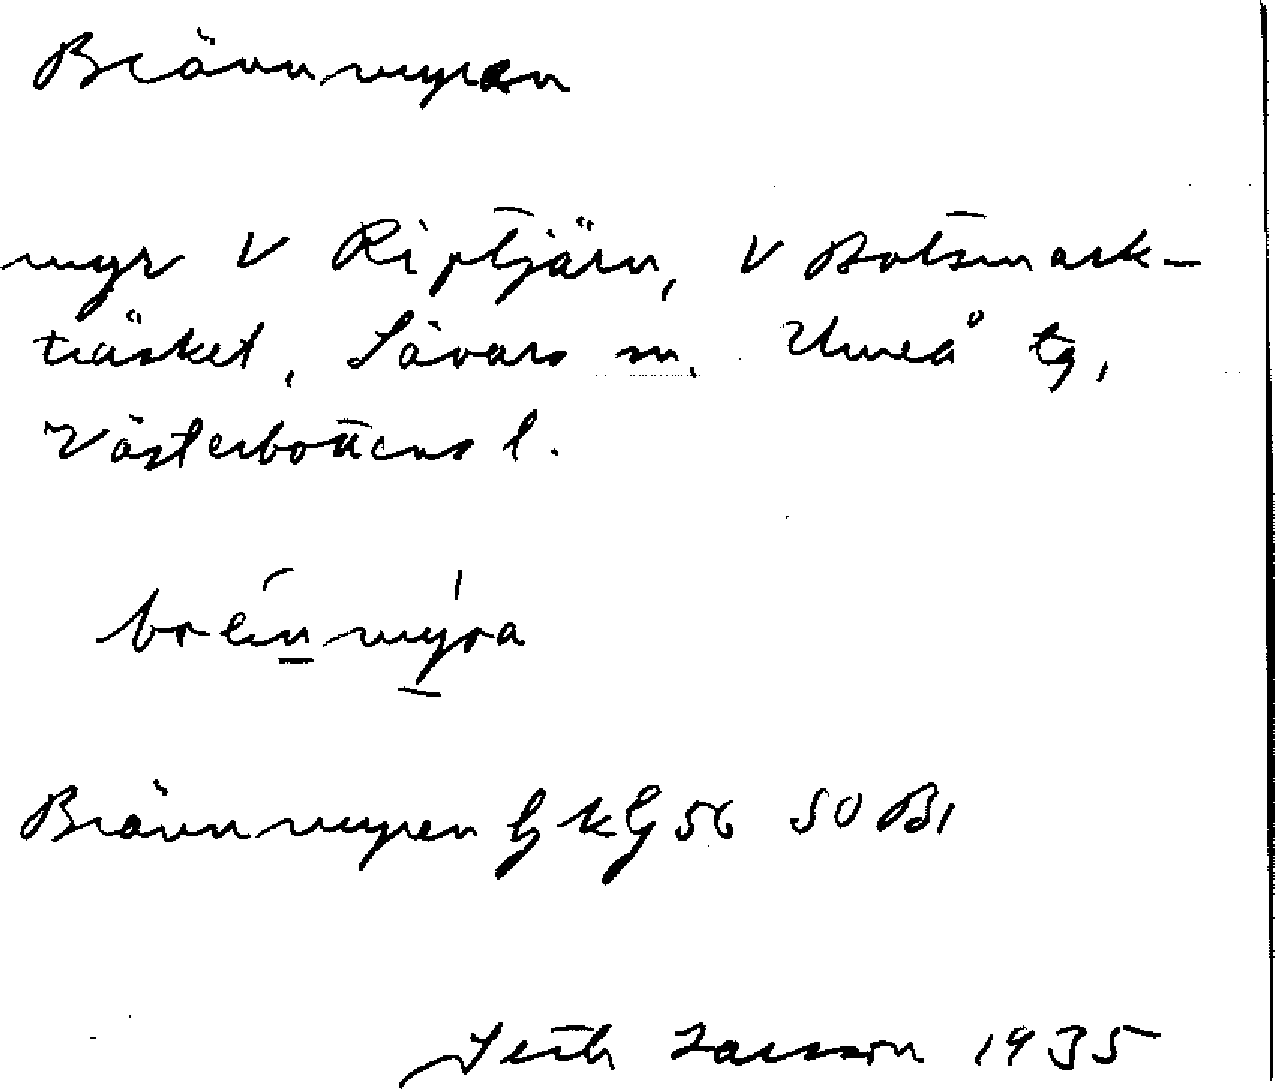 Brännmyran
myr V Riptjärn, V Botsmark-
träsket, Sävars sn. Umeå tg,
Västerbottens l.
brénmýra
Brännmyren GK G 56 50 B1
Seth Larsson 1935